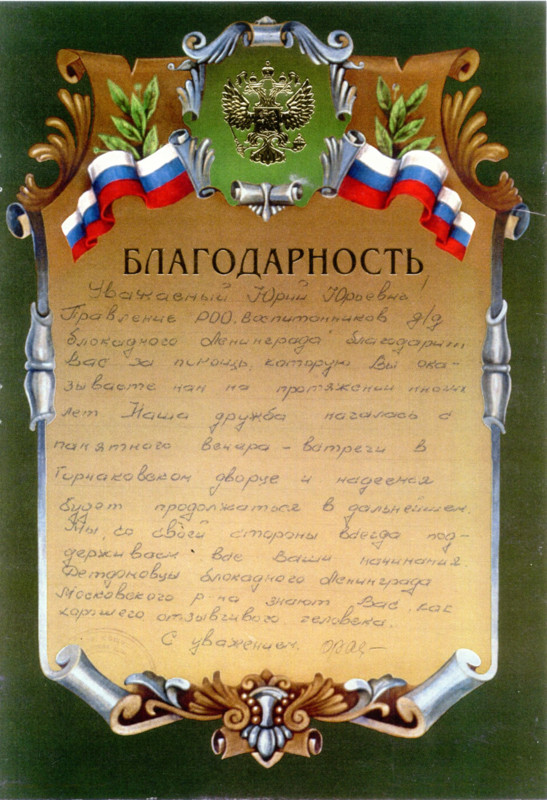 БЛАГОДАРНОСТЬ
Уважаемый Юрий Юрьевич!
Правление РОО. Воспитанников д/д
блокадного Ленинграда благодарит
Вас за помощь, которую Вы ока-
зываете нам на протяжении многих
лет Наша дружба началась с
памятного вечера – встречи в
Горчаковском дворце и надеемся
будет продолжаться в дальнейшем.
Мы, со своей стороны всегда под-
держиваем все Ваши начинания.
Детдомовцы блокадного Ленинграда
Московского р-на знают Вас, как
хорошего отзывчивого человека.
С уважением.